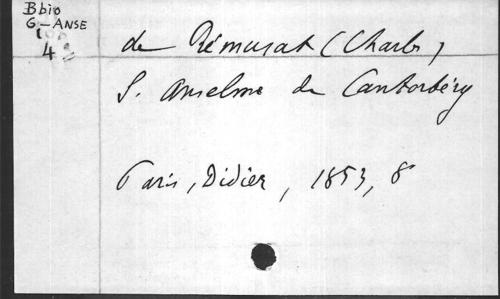 Bbio
G-ANSE
4
de Rémusat (Charles)
S. Anselme de Cantorbéry
Paris, Didier, 1853, 8°